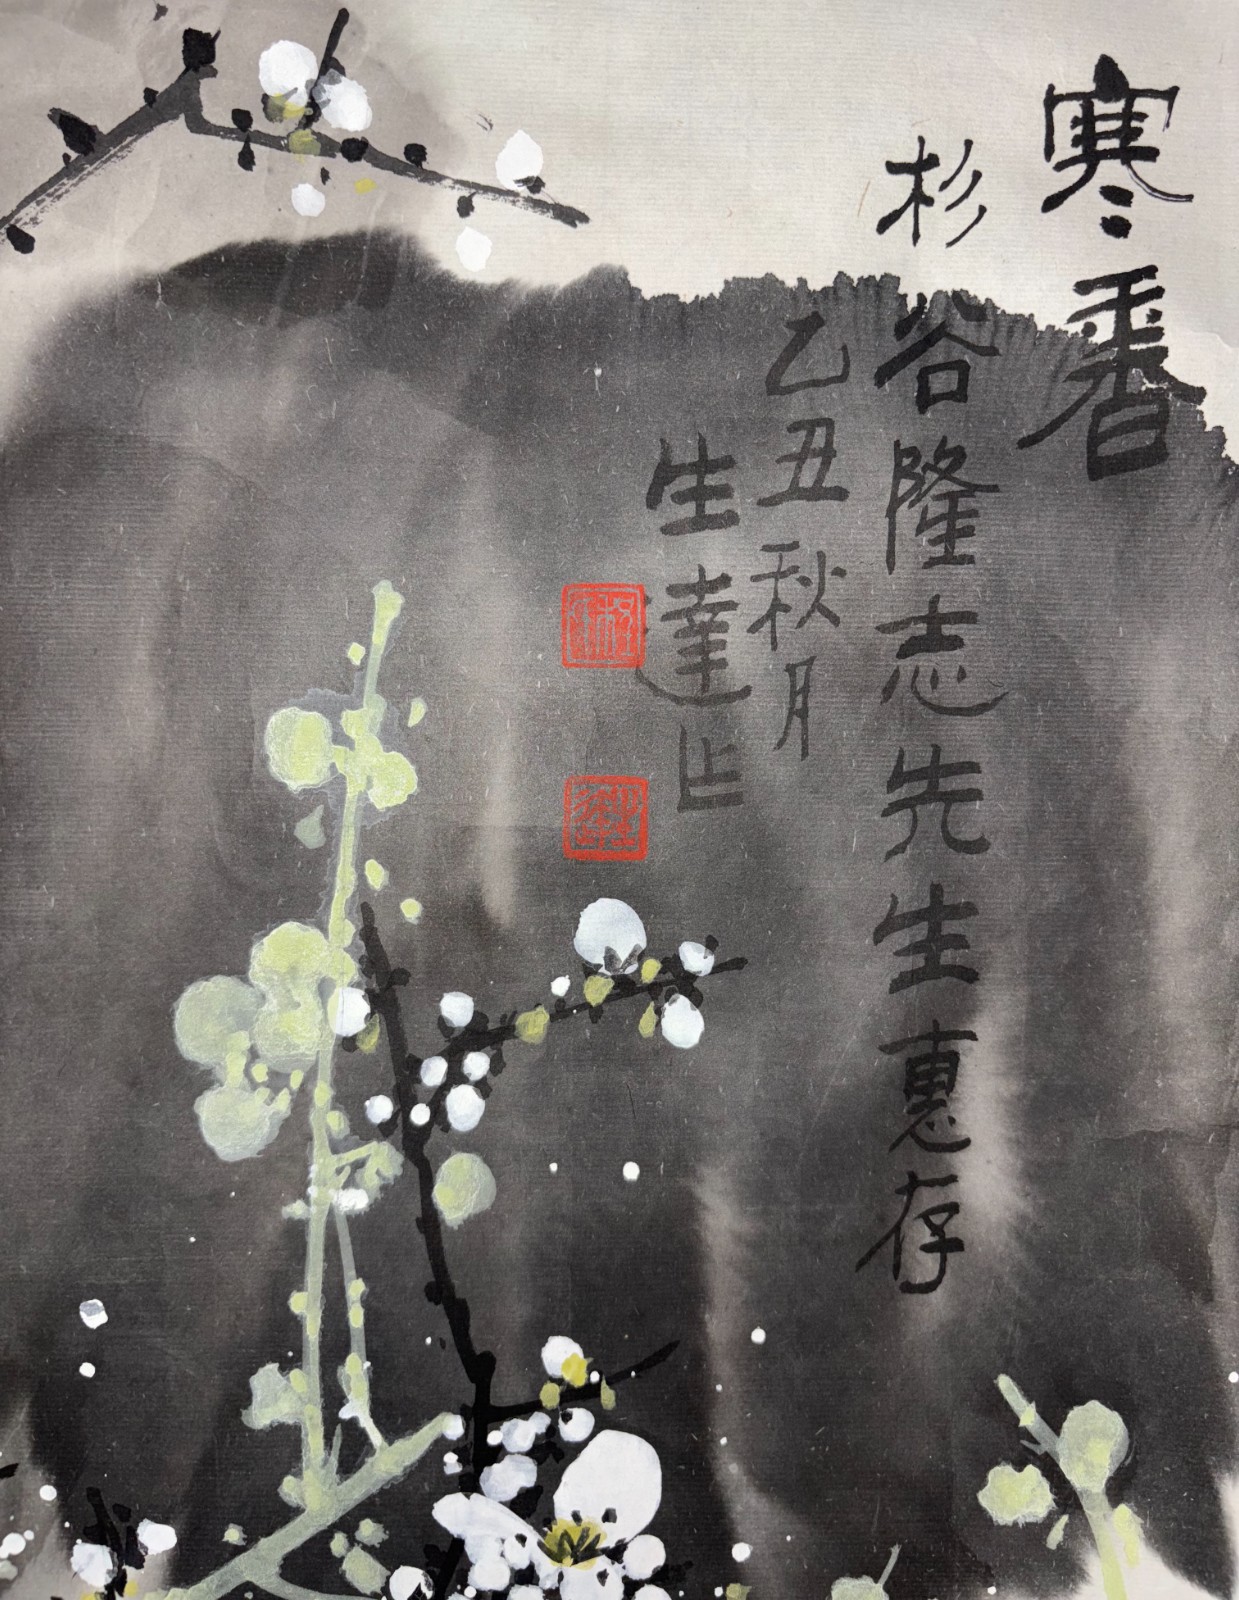 寒香
杉谷隆志先生惠存
乙丑秋月
生達